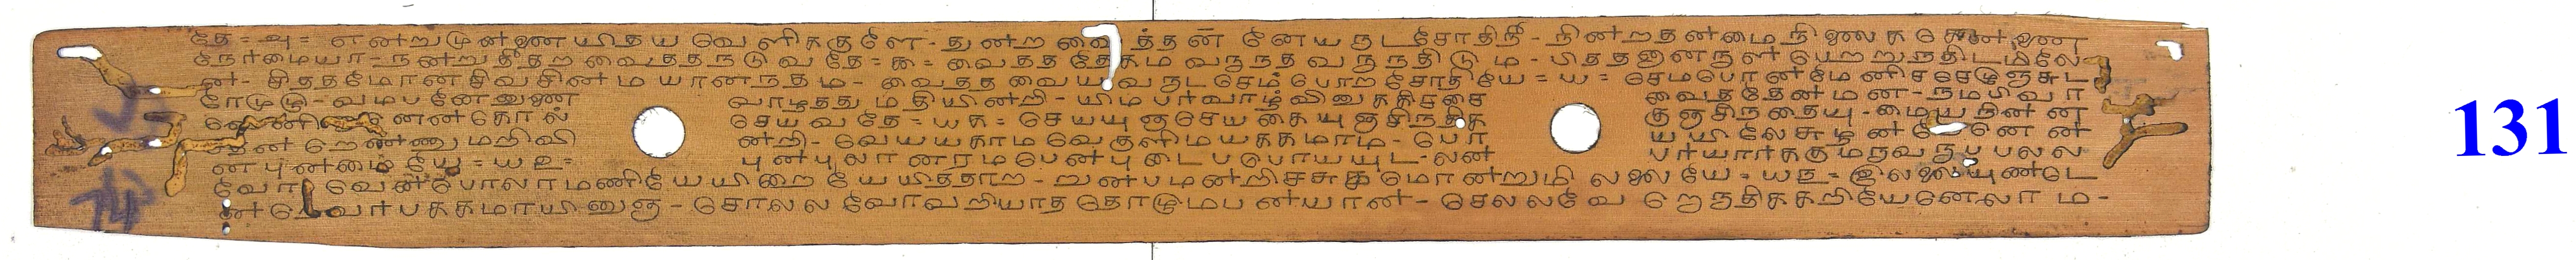 தே = அ = என்றுமுன்னை யிதய வெளிககுளே - துன்ற வை த்தன் னேய நடசோதிநீ - நின்றதன்மை நிலை க
நேர்மையா - நன்றுதீதற வைத்தநடுவ தே = க = வைத்ததேகம வநநத வநநதிடும - பித்தனானநான் பெறறுநதிடமலே
ன் - சித்தமோன சிவசின் ம யானநதம - வைத்த வையவ நடசெம்பொற சோதியே = ய = செமபொன்மேணிச செழுஞசுட
ரோமுழு - வமபனேனுன் வாழதது மதியின்றி - யிமபர்வாழ்வினுககிசசை வைததேன் மன - நமபிவா
செயவ தே = யக = செயயுஞசெய கையுஞசிநதிக குஞசிநதையு - மைய நின்ன
மறிவி ன்றி - வேயயகாம வெகுளிமயககமாம - பொ யயி லேசுழன்றேனென
ன புன்மை யே = யஉ = புன்புலால னரமபென்புடைபபடுபாயயுட - லன் பர்யார்ககுமநவநபபலல
வோ வென்போலாமணியே யிறை யே யித்தாற - றுன்பமன்றிசசுகமொன்றுமி லலையே = யஉ = இலலையுண்டெ
ன் றெவர்பககமாயினுஞ - சொலல வோவறியாத தொழும்பன்யான் - செலலவே றெநதிககறியேனேலா ம -
131